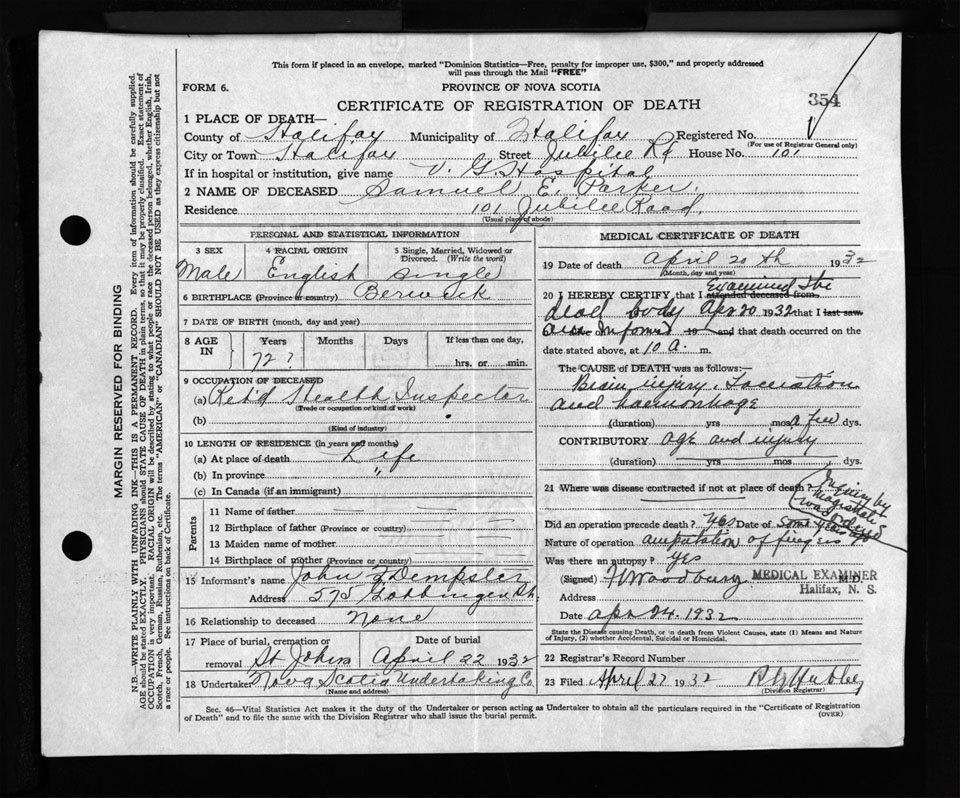 This form if placed in an envelope, marked "Dominion Statistics—Free, penalty for improper use, $300," and properly addressed
will pass through the Mail "FREE"
FORM 6.
PROVINCE OF NOVA SCOTIA
354
CERTIFICATE OF REGISTRATION OF DEATH
1 PLACE OF DEATH—
County of Halifax Municipality of Halifax Registered No.
(For use of Registrar General only)
City or Town Halifax Street Jubilee Rd House No. 101
If in hospital or institution, give name V. G. Hospital
2 NAME OF DECEASED Samuel E. Parker.
Residence 101 Jubilee Road.
(Usual place of abode)
PERSONAL AND STATISTICAL INFORMATION
3 SEX 4 RACIAL ORIGIN 5 Single, Married, Widowed or Divorced. (Write the word)
Male English single
6 BIRTHPLACE (Province or country) Berwick
7 DATE OF BIRTH (month, day and year)
8 AGE IN Years Months Days If less than one day,
72? hrs. or min.
9 OCCUPATION OF DECEASED
(a) Ret'd Health Inspector
(Trade or occupation or kind of work)
(b)
(Kind of industry)
10 LENGTH OF RESIDENCE (in years and months)
(a) At place of death Life
(b) In province "
(c) In Canada (if an immigrant)
Parents
11 Name of father
12 Birthplace of father (Province or country)
13 Maiden name of mother
14 Birthplace of mother (Province or country)
15 Informant's name John J Dempster
Address 575 Gottingen St.
16 Relationship to deceased None
17 Place of burial, cremation or Date of burial
removal St Johns April 22 1932
18 Undertaker Nova Scotia Undertaking Co
(Name and address)
MEDICAL CERTIFICATE OF DEATH
19 Date of death April 20th 1932
(Month, day and year)
Examined the
20 I HEREBY CERTIFY that I attended deceased from
dead body Apr 20 1932 that I last saw
Informed 19 and that death occurred on
date stated above, at 10 a. m.
The CAUSE of DEATH was as follows:
Brain injury. Laceration
and haemorrhage
(duration) yrs mos a few dys.
CONTRIBUTORY age and injury
(duration) yrs mos. dys.
21 Where was disease contracted if not at place of death?
Inquiry by
Magistrate
was
Did an operation precede death? Yes Date of some years ago
Nature of operation amputation of fingers
Was there an autopsy? yes
(Signed) Woodbury M.D.
MEDICAL EXAMINER
Halifax, N. S.
Address
Date Apr 24. 1932
State the Disease causing Death, or in death from Violent Causes, state (1) Means and Nature
of Injury, (2) whether Accidental, Suicidal or Homicidal.
22 Registrar's Record Number
23 Filed April 27 1932
(Division Registrar)
Sec. 46—Vital Statistics Act makes it the duty of the Undertaker or person acting as Undertaker to obtain all the particulars required in the "Certificate of Registration
of Death" and to file the same with the Division Registrar who shall issue the burial permit.
(OVER)
MARGIN RESERVED FOR BINDING
N.B.—WRITE PLAINLY WITH UNFADING INK—THIS IS A PERMANENT RECORD. Every item of information should be carefully supplied.
AGE should be stated EXACTLY. PHYSICIANS should STATE CAUSE OF DEATH in plain terms, so that it may be properly classified. Exact statement of
OCCUPATION is very important. RACIAL ORIGIN will be described by stating to what people or race the deceased person belonged, whether English, Irish,
Scotch, French, German, Russian, Ruthenian, etc. The terms "AMERICAN" or "CANADIAN" SHOULD NOT BE USED as they express citizenship but not
a race or people. See instructions on back of Certificate.